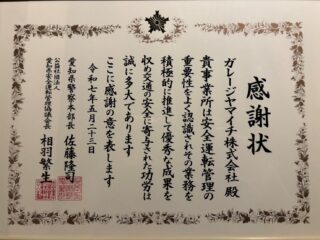 感謝状
ガレージヤマイチ株式会社 殿
貴事業所は安全運転管理の
重要性をよく認識されその業務を
積極的に推進して優秀な成果を
収め交通の安全に寄与された功労は
誠に多大であります
ここに感謝の意を表します
令和七年五月二十三日
愛知県警察本部長 佐藤隆司
公益社団法人
愛知県安全運転管理協議会長 相羽繁生